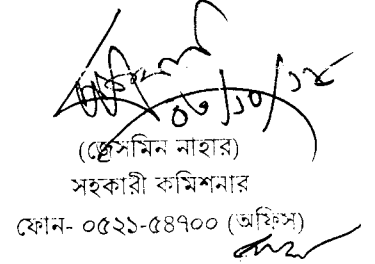 (জেসমিন নাহার)
সহকারী কমিশনার
ফোন- ০৫২১-৫৪৭০০ (অফিস)